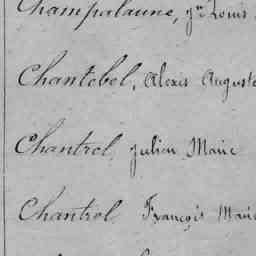 Champalaune, Jn Louis
Chantebel, Alexis Auguste
Chantrel, Julien Marie
Chantrel François Marie